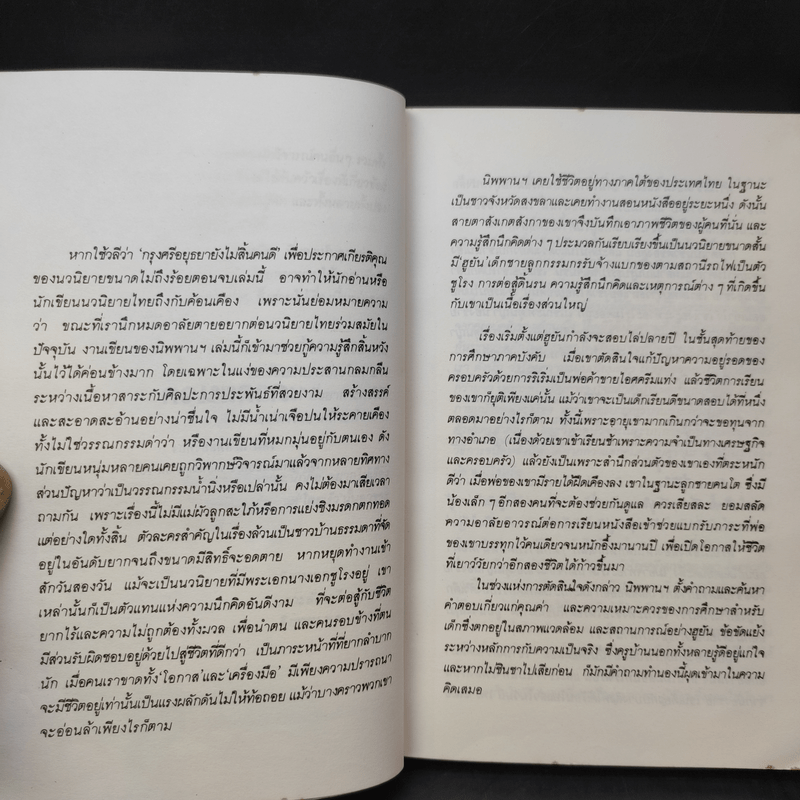 หากใช้วลีว่า 'กรุงศรีอยุธยายังไม่สิ้นคนดี' เพื่อประกาศเกียรติคุณ
ของนวนิยายขนาดไม่ถึงร้อยตอนจบเล่มนี้ อาจทำให้นักอ่านหรือ
นักเขียนนวนิยายไทยถึงกับค้อนเคือง เพราะนั่นย่อมหมายความ
ว่า ขณะที่เรานึกหมดอาลัยตายอยากต่อนวนิยายไทยร่วมสมัยใน
ปัจจุบัน งานเขียนของนิพพานฯ เล่มนี้ก็เข้ามาช่วยกู้ความรู้สึกสิ้นหวัง
นั้นไว้ได้ค่อนข้างมาก โดยเฉพาะในแง่ของความประสานกลมกลืน
ระหว่างเนื้อหาสาระกับศิลปะการประพันธ์ที่สวยงาม สร้างสรรค์
และสะอาดสะอ้านอย่างน่าชื่นใจ ไม่มีน้ำเน่าเจือปนให้ระคายเคือง
ทั้งไม่ใช่วรรณกรรมด่าว่า หรืองานเขียนที่หมกมุ่นอยู่กับตนเอง ดัง
นักเขียนหนุ่มหลายคนเคยถูกวิพากษ์วิจารณ์มาแล้วจากหลายทิศทาง
ส่วนปัญหาว่าเป็นวรรณกรรมน้ำนิ่งหรือเปล่านั้น คงไม่ต้องมาเสียเวลา
ถามกัน เพราะเรื่องนี้ไม่มีแม่ผัวลูกสะใภ้หรือการแย่งชิงมรดกตกทอด
แต่อย่างใดทั้งสิ้น ตัวละครสำคัญในเรื่องล้วนเป็นชาวบ้านธรรมดาที่จัด
อยู่ในอันดับยากจนถึงขนาดมีสิทธิ์จะอดตาย หากหยุดทำงานเข้า
สักวันสองวัน แม้จะเป็นนวนิยายที่มีพระเอกนางเอกชูโรงอยู่ เขา
เหล่านั้นก็เป็นตัวแทนแห่งความนึกคิดอันดีงาม ที่จะต่อสู้กับชีวิต
ยากไร้และความไม่ถูกต้องทั้งมวล เพื่อนำตน และคนรอบข้างที่ตน
มีส่วนรับผิดชอบอยู่ด้วยไปสู่ชีวิตที่ดีกว่า เป็นภาระหน้าที่ที่ยากลำบาก
นัก เมื่อคนเราขาดทั้ง 'โอกาส' และ 'เครื่องมือ' มีเพียงความปรารถนา
จะมีชีวิตอยู่เท่านั้นเป็นแรงผลักดันไม่ให้ท้อถอย แม้ว่าบางคราวพวกเขา
จะอ่อนล้าเพียงไรก็ตาม
นิพพานฯ เคยใช้ชีวิตอยู่ทางภาคใต้ของประเทศไทย ในฐานะ
เป็นชาวจังหวัดสงขลาและเคยทำงานสอนหนังสืออยู่ระยะหนึ่ง ดังนั้น
สายตาสังเกตสังกาของเขาจึงบันทึกเอาภาพชีวิตของผู้คนที่นั่น และ
ความรู้สึกนึกคิดต่าง ๆ ประมวลกันเรียบเรียงขึ้นเป็นนวนิยายขนาดสั้น
มี 'ฮูยัน' เด็กชายลูกกรรมกรรับจ้างแบกของตามสถานีรถไฟเป็นตัว
ชูโรง การต่อสู้ดิ้นรน ความรู้สึกนึกคิดและเหตุการณ์ต่าง ๆ ที่เกิดขึ้น
กับเขาเป็นเนื้อเรื่องส่วนใหญ่
เรื่องเริ่มตั้งแต่ฮูยันกำลังจะสอบไล่ปลายปี ในชั้นสุดท้ายของ
การศึกษาภาคบังคับ เมื่อเขาตัดสินใจแก้ปัญหาความอยู่รอดของ
ครอบครัวด้วยการริเริ่มเป็นพ่อค้าขายไอศครีมแท่ง แล้วชีวิตการเรียน
ของเขาก็ยุติเพียงแค่นั้น แม้ว่าเขาจะเป็นเด็กเรียนดีขนาดสอบได้ที่หนึ่ง
ตลอดมาอย่างไรก็ตาม ทั้งนี้เพราะอายุเขามากเกินกว่าจะขอทุนจาก
ทางอำเภอ (เนื่องด้วยเขาเข้าเรียนช้าเพราะความจำเป็นทางเศรษฐกิจ
และครอบครัว) แล้วยังเป็นเพราะสำนึกส่วนตัวของเขาเองที่ตระหนัก
ดีว่า เมื่อพ่อของเขามีรายได้ฝืดเคืองลง เขาในฐานะลูกชายคนโต ซึ่งมี
น้องเล็ก ๆ อีกสองคนที่จะต้องช่วยกันดูแล ควรเสียสละ ยอมสลัด
ความอาลัยอาวรณ์ต่อการเรียนหนังสือเข้าช่วยแบกรับภาระที่พ่อ
ของเขาบรรทุกไว้คนเดียวจนหนักอึ้งมานานปี เพื่อเปิดโอกาสให้ชีวิต
ที่เยาว์วัยกว่าอีกสองชีวิตได้ก้าวขึ้นมา
ในช่วงแห่งการตัดสินใจดังกล่าว นิพพานฯ ตั้งคำถามและค้นหา
คำตอบเกี่ยวแก่คุณค่า และความเหมาะควรของการศึกษาสำหรับ
เด็กซึ่งตกอยู่ในสภาพแวดล้อม และสถานการณ์อย่างฮูยัน ข้อขัดแย้ง
ระหว่างหลักการกับความเป็นจริง ซึ่งครูบ้านนอกทั้งหลายรู้ดีอยู่แก่ใจ
และหากไม่ชินชาไปเสียก่อน ก็มักมีคำถามทำนองนี้ผุดเข้ามาในความ
คิดเสมอ